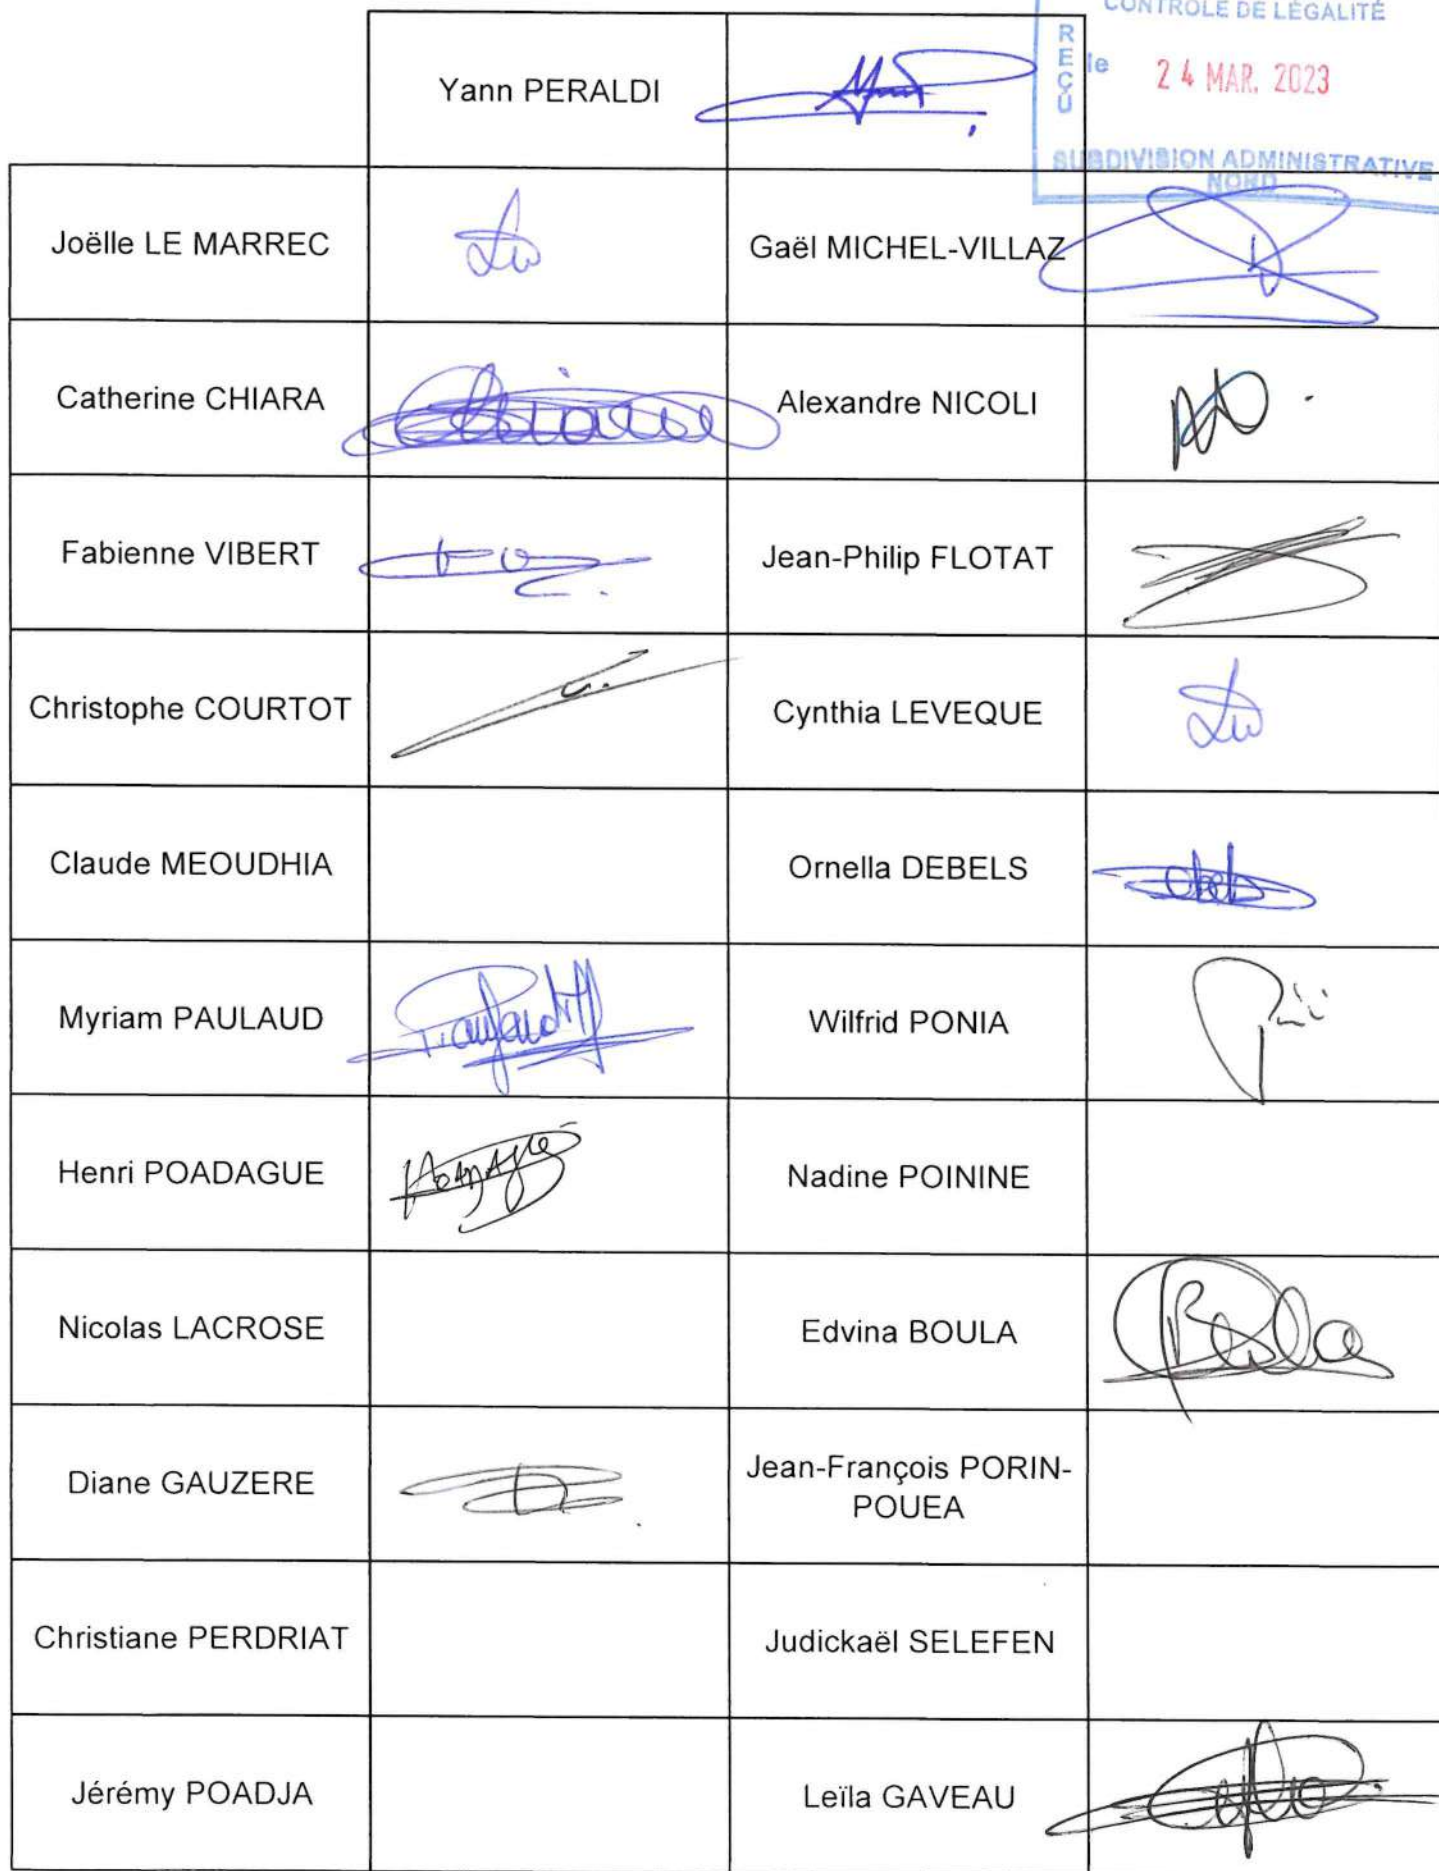 CONTRÔLE DE LÉGALITÉ
REÇU
le 24 MAR. 2023
SUBDIVISION ADMINISTRATIVE
NORD
Yann PERALDI
Joëlle LE MARREC
Gaël MICHEL-VILLAZ
Catherine CHIARA
Alexandre NICOLI
Fabienne VIBERT
Jean-Philip FLOTAT
Christophe COURTOT
Cynthia LEVEQUE
Claude MEOUDHIA
Ornella DEBELS
Myriam PAULAUD
Wilfrid PONIA
Henri POADAGUE
Nadine POININE
Nicolas LACROSE
Edvina BOULA
Diane GAUZERE
Jean-François PORIN-
POUEA
Christiane PERDRIAT
Judickaël SELEFEN
Jérémy POADJA
Leïla GAVEAU